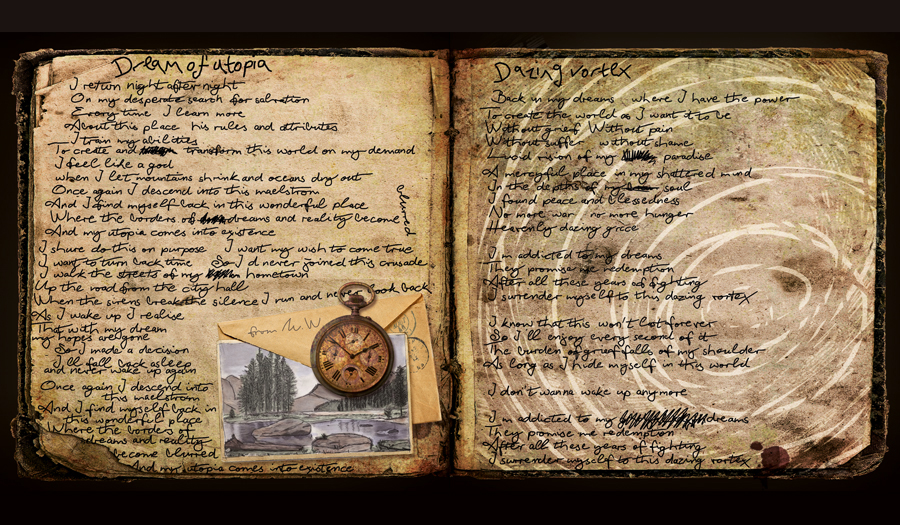 Dream of utopia
I return night after night
On my desperate search for salvation
Every time I learn more
About this place his rules and attributes
I train my abilities
To create and transform this world on my demand
I feel like a god
when I let mountains shrink and oceans dry out
Once again I descend into this maelstrom
And I find myself back in this wonderful place
Where the borders of dreams and reality become
blurred
And my utopia comes into existence
I shure do this on purpose I want my wish to come true
I want to turn back time So I d never joined this crusade
I walk the streets of my hometown
Up the road from the city hall
When the sirens break the silence I run and never look back
As I wake up I realise
That with my dream
my hopes are gone
So I made a decision
I ll fall back asleep
and never wake up again
Once again I descend into
this maelstrom
And I find myself back in
this wonderful place
Where the borders of
dreams and reality
become blurred
And my utopia comes into existence
from W. W
Dazing vortex
Back in my dreams where I have the power
To create the world as I want it to be
Without grief Without pain
Without suffer without shame
Lucid vision of my paradise
A mercyful place in my shattered mind
In the depths of my soul
I found peace and blessedness
No more war no more hunger
Heavenly dazing grice
I m addicted to my dreams
They promise me redemption
After all these years of fighting
I surrender myself to this dazing vortex
I know that this won t last forever
So I ll enjoy every second of it
The burden of grieff falls of my shoulder
As long as I hide myself in this world
I don t wanna wake up anymore
I m addicted to my dreams
They promise me redemption
After all these years of fighting
I surrender myself to this dazing vortex